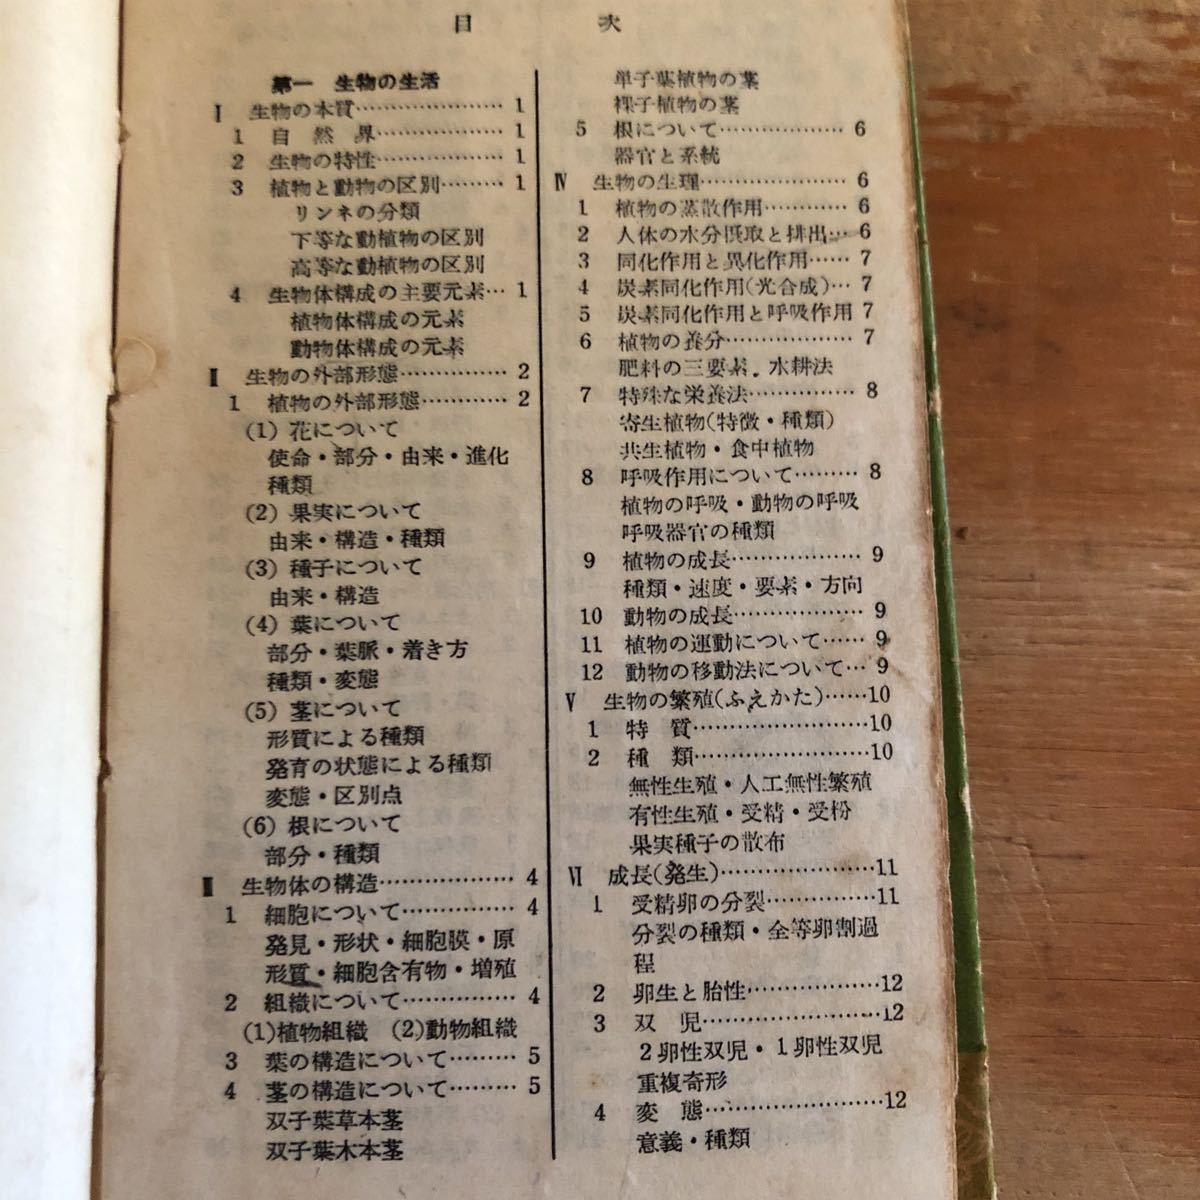 目次
第一 生物の生活
Ⅰ 生物の本質…………………1
1 自然界………………1
2 生物の特性………………1
3 植物と動物の区別………1
リンネの分類
下等な動植物の区別
高等な動植物の区別
4 生物体構成の主要元素…1
植物体構成の元素
動物体構成の元素
Ⅱ 生物の外部形態……………2
1 植物の外部形態…………2
(1) 花について
使命・部分・由来・進化
種類
(2) 果実について
由来・構造・種類
(3) 種子について
由来・構造
(4) 葉について
部分・葉脈・着き方
種類・変態
(5) 茎について
形質による種類
発育の状態による種類
変態・区別点
(6) 根について
部分・種類
Ⅲ 生物体の構造………………4
1 細胞について……………4
発見・形状・細胞膜・原
形質・細胞含有物・増殖
2 組織について……………4
(1)植物組織 (2)動物組織
3 葉の構造について………5
4 茎の構造について………5
双子葉草本茎
双子葉木本茎
単子葉植物の茎
裸子植物の茎
5 根について………………6
器官と系統
Ⅳ 生物の生理…………………6
1 植物の蒸散作用…………6
2 人体の水分摂取と排出…6
3 同化作用と異化作用……7
4 炭素同化作用(光合成)…7
5 炭素同化作用と呼吸作用 7
6 植物の養分………………7
肥料の三要素．水耕法
7 特殊な栄養法……………8
寄生植物(特徴・種類)
共生植物・食中植物
8 呼吸作用について………8
植物の呼吸・動物の呼吸
呼吸器官の種類
9 植物の成長………………9
種類・速度・要素・方向
10 動物の成長………………9
11 植物の運動について……9
12 動物の移動法について…9
Ⅴ 生物の繁殖(ふえかた)……10
1 特質……………………10
2 種類……………………10
無性生殖・人工無性繁殖
有性生殖・受精・受粉
果実種子の散布
Ⅵ 成長(発生)…………………11
1 受精卵の分裂……………11
分裂の種類・全等卵割過
程
2 卵生と胎性………………12
3 双児……………………12
2卵性双児・1卵性双児
重複奇形
4 変態……………………12
意義・種類